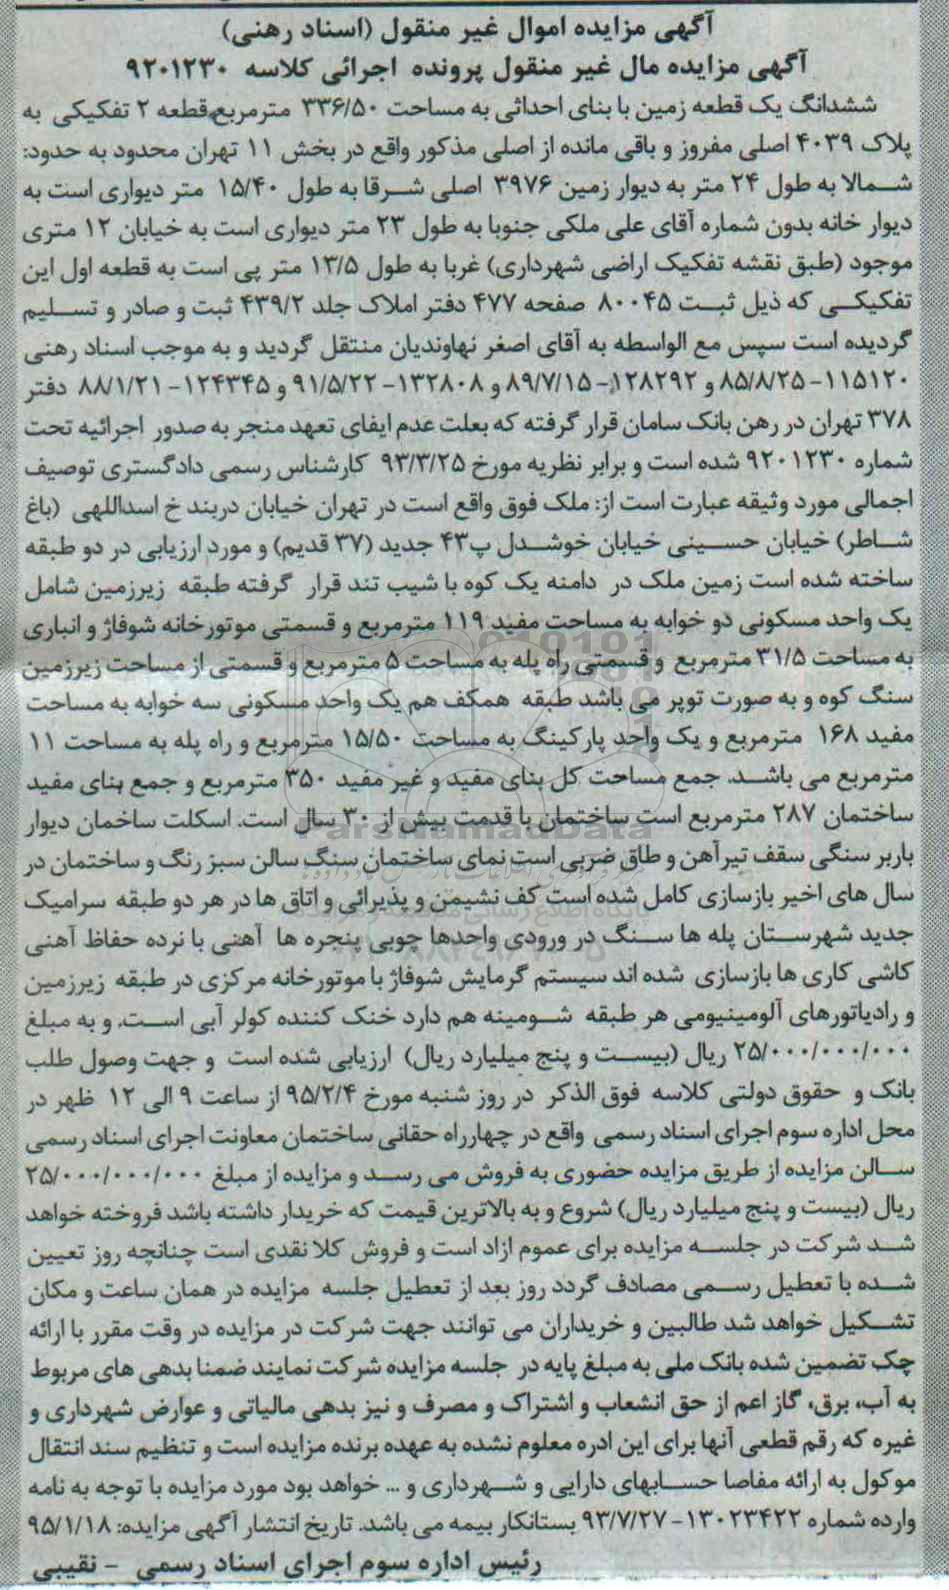 آگهی مزایده اموال غیر منقول (اسناد رهنی)
آگهی مزایده مال غیر منقول پرونده اجرائی کلاسه ۹۲۰۱۲۳۰
ششدانگ یک قطعه زمین با بنای احداثی به مساحت ۳۳۶/۵۰ مترمربع،قطعه ۲ تفکیکی به
پلاک ۴۰۳۹ اصلی مفروز و باقی مانده از اصلی مذکور واقع در بخش ۱۱ تهران محدود به حدود:
شمالا به طول ۲۴ متر به دیوار زمین ۳۹۷۶ اصلی شرقا به طول ۱۵/۴۰ متر دیواری است به
دیوار خانه بدون شماره آقای علی ملکی جنوبا به طول ۲۳ متر دیواری است به خیابان ۱۲ متری
موجود (طبق نقشه تفکیک اراضی شهرداری) غربا به طول ۱۳/۵ متر پی است به قطعه اول این
تفکیکی که ذیل ثبت ۸۰۰۴۵ صفحه ۴۷۷ دفتر املاک جلد ۴۳۹/۲ ثبت و صادر و تسلیم
گردیده است سپس مع الواسطه به آقای اصغر نهاوندیان منتقل گردید و به موجب اسناد رهنی
۱۱۵۱۲۰-۸۵/۸/۲۵ و ۱۲۸۲۹۲-۸۹/۷/۱۵ و ۱۳۲۸۰۸-۹۱/۵/۲۲ و ۱۲۴۳۴۵-۸۸/۱/۲۱ دفتر
۳۷۸ تهران در رهن بانک سامان قرار گرفته که بعلت عدم ایفای تعهد منجر به صدور اجرائیه تحت
شماره ۹۲۰۱۲۳۰ شده است و برابر نظریه مورخ ۹۳/۳/۲۵ کارشناس رسمی دادگستری توصیف
اجمالی مورد وثیقه عبارت است از: ملک فوق واقع است در تهران خیابان دربند خ اسداللهی (باغ
شاطر) خیابان حسینی خیابان خوشدل پ۴۳ جدید (۳۷ قدیم) و مورد ارزیابی در دو طبقه
ساخته شده است زمین ملک در دامنه یک کوه با شیب تند قرار گرفته طبقه زیرزمین شامل
یک واحد مسکونی دو خوابه به مساحت مفید ۱۱۹ مترمربع و قسمتی موتورخانه شوفاژ و انباری
به مساحت ۳۱/۵ مترمربع و قسمتی راه پله به مساحت ۵ مترمربع و قسمتی از مساحت زیرزمین
سنگ کوه و به صورت توپر می باشد طبقه همکف هم یک واحد مسکونی سه خوابه به مساحت
مفید ۱۶۸ مترمربع و یک واحد پارکینگ به مساحت ۱۵/۵۰ مترمربع و راه پله به مساحت ۱۱
مترمربع می باشد. جمع مساحت کل بنای مفید و غیر مفید ۳۵۰ مترمربع و جمع بنای مفید
ساختمان ۲۸۷ مترمربع است ساختمان با قدمت بیش از ۳۰ سال است. اسکلت ساخمان دیوار
باربر سنگی سقف تیرآهن و طاق ضربی است نمای ساختمان سنگ سالن سبز رنگ و ساختمان در
سال های اخیر بازسازی کامل شده است کف نشیمن و پذیرائی و اتاق ها در هر دو طبقه سرامیک
جدید شهرستان پله ها سنگ در ورودی واحدها چوبی پنجره ها آهنی با نرده حفاظ آهنی
کاشی کاری ها بازسازی شده اند سیستم گرمایش شوفاژ با موتورخانه مرکزی در طبقه زیرزمین
و رادیاتورهای آلومینیومی هر طبقه شومینه هم دارد خنک کننده کولر آبی است. و به مبلغ
۲۵/۰۰۰/۰۰۰/۰۰۰ ریال (بیست و پنج میلیارد ریال) ارزیابی شده است و جهت وصول طلب
بانک و حقوق دولتی کلاسه فوق الذکر در روز شنبه مورخ ۹۵/۲/۴ از ساعت ۹ الی ۱۲ ظهر در
محل اداره سوم اجرای اسناد رسمی واقع در چهارراه حقانی ساختمان معاونت اجرای اسناد رسمی
سالن مزایده از طریق مزایده حضوری به فروش می رسد و مزایده از مبلغ ۲۵/۰۰۰/۰۰۰/۰۰۰
ریال (بیست و پنج میلیارد ریال) شروع و به بالاترین قیمت که خریدار داشته باشد فروخته خواهد
شد شرکت در جلسه مزایده برای عموم ازاد است و فروش کلا نقدی است چنانچه روز تعیین
شده با تعطیل رسمی مصادف گردد روز بعد از تعطیل جلسه مزایده در همان ساعت و مکان
تشکیل خواهد شد طالبین و خریداران می توانند جهت شرکت در مزایده در وقت مقرر با ارائه
چک تضمین شده بانک ملی به مبلغ پایه در جلسه مزایده شرکت نمایند ضمنا بدهی های مربوط
به آب، برق، گاز اعم از حق انشعاب و اشتراک و مصرف و نیز بدهی مالیاتی و عوارض شهرداری و
غیره که رقم قطعی آنها برای این ادره معلوم نشده به عهده برنده مزایده است و تنظیم سند انتقال
موکول به ارائه مفاصا حسابهای دارایی و شهرداری و ... خواهد بود مورد مزایده با توجه به نامه
وارده شماره ۱۳۰۲۳۴۲۲-۹۳/۷/۲۷ بستانکار بیمه می باشد. تاریخ انتشار آگهی مزایده: ۹۵/۱/۱۸
رئیس اداره سوم اجرای اسناد رسمی - نقیبی
ParsNamadData